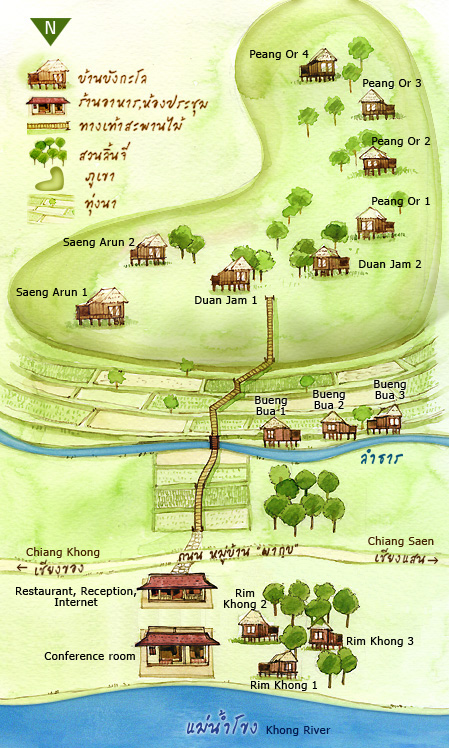 N
บ้านบังกะโล
ร้านอาหาร,ห้องประชุม
ทางเท้าสะพานไม้
สวนลิ้นจี่
ภูเขา
ทุ่งนา
Peang Or 4
Peang Or 3
Peang Or 2
Peang Or 1
Saeng Arun 2
Saeng Arun 1
Duan Jam 1
Duan Jam 2
Bueng
Bua 1
Bueng
Bua 2
Bueng
Bua 3
ลำธาร
Chiang Khong
เชียงของ
ถนน หมู่บ้าน
Chiang Saen
เชียงแสน
Restaurant, Reception,
Internet
Conference room
Rim
Khong 2
Rim Khong 3
Rim Khong 1
แม่น้ำโขง Khong River